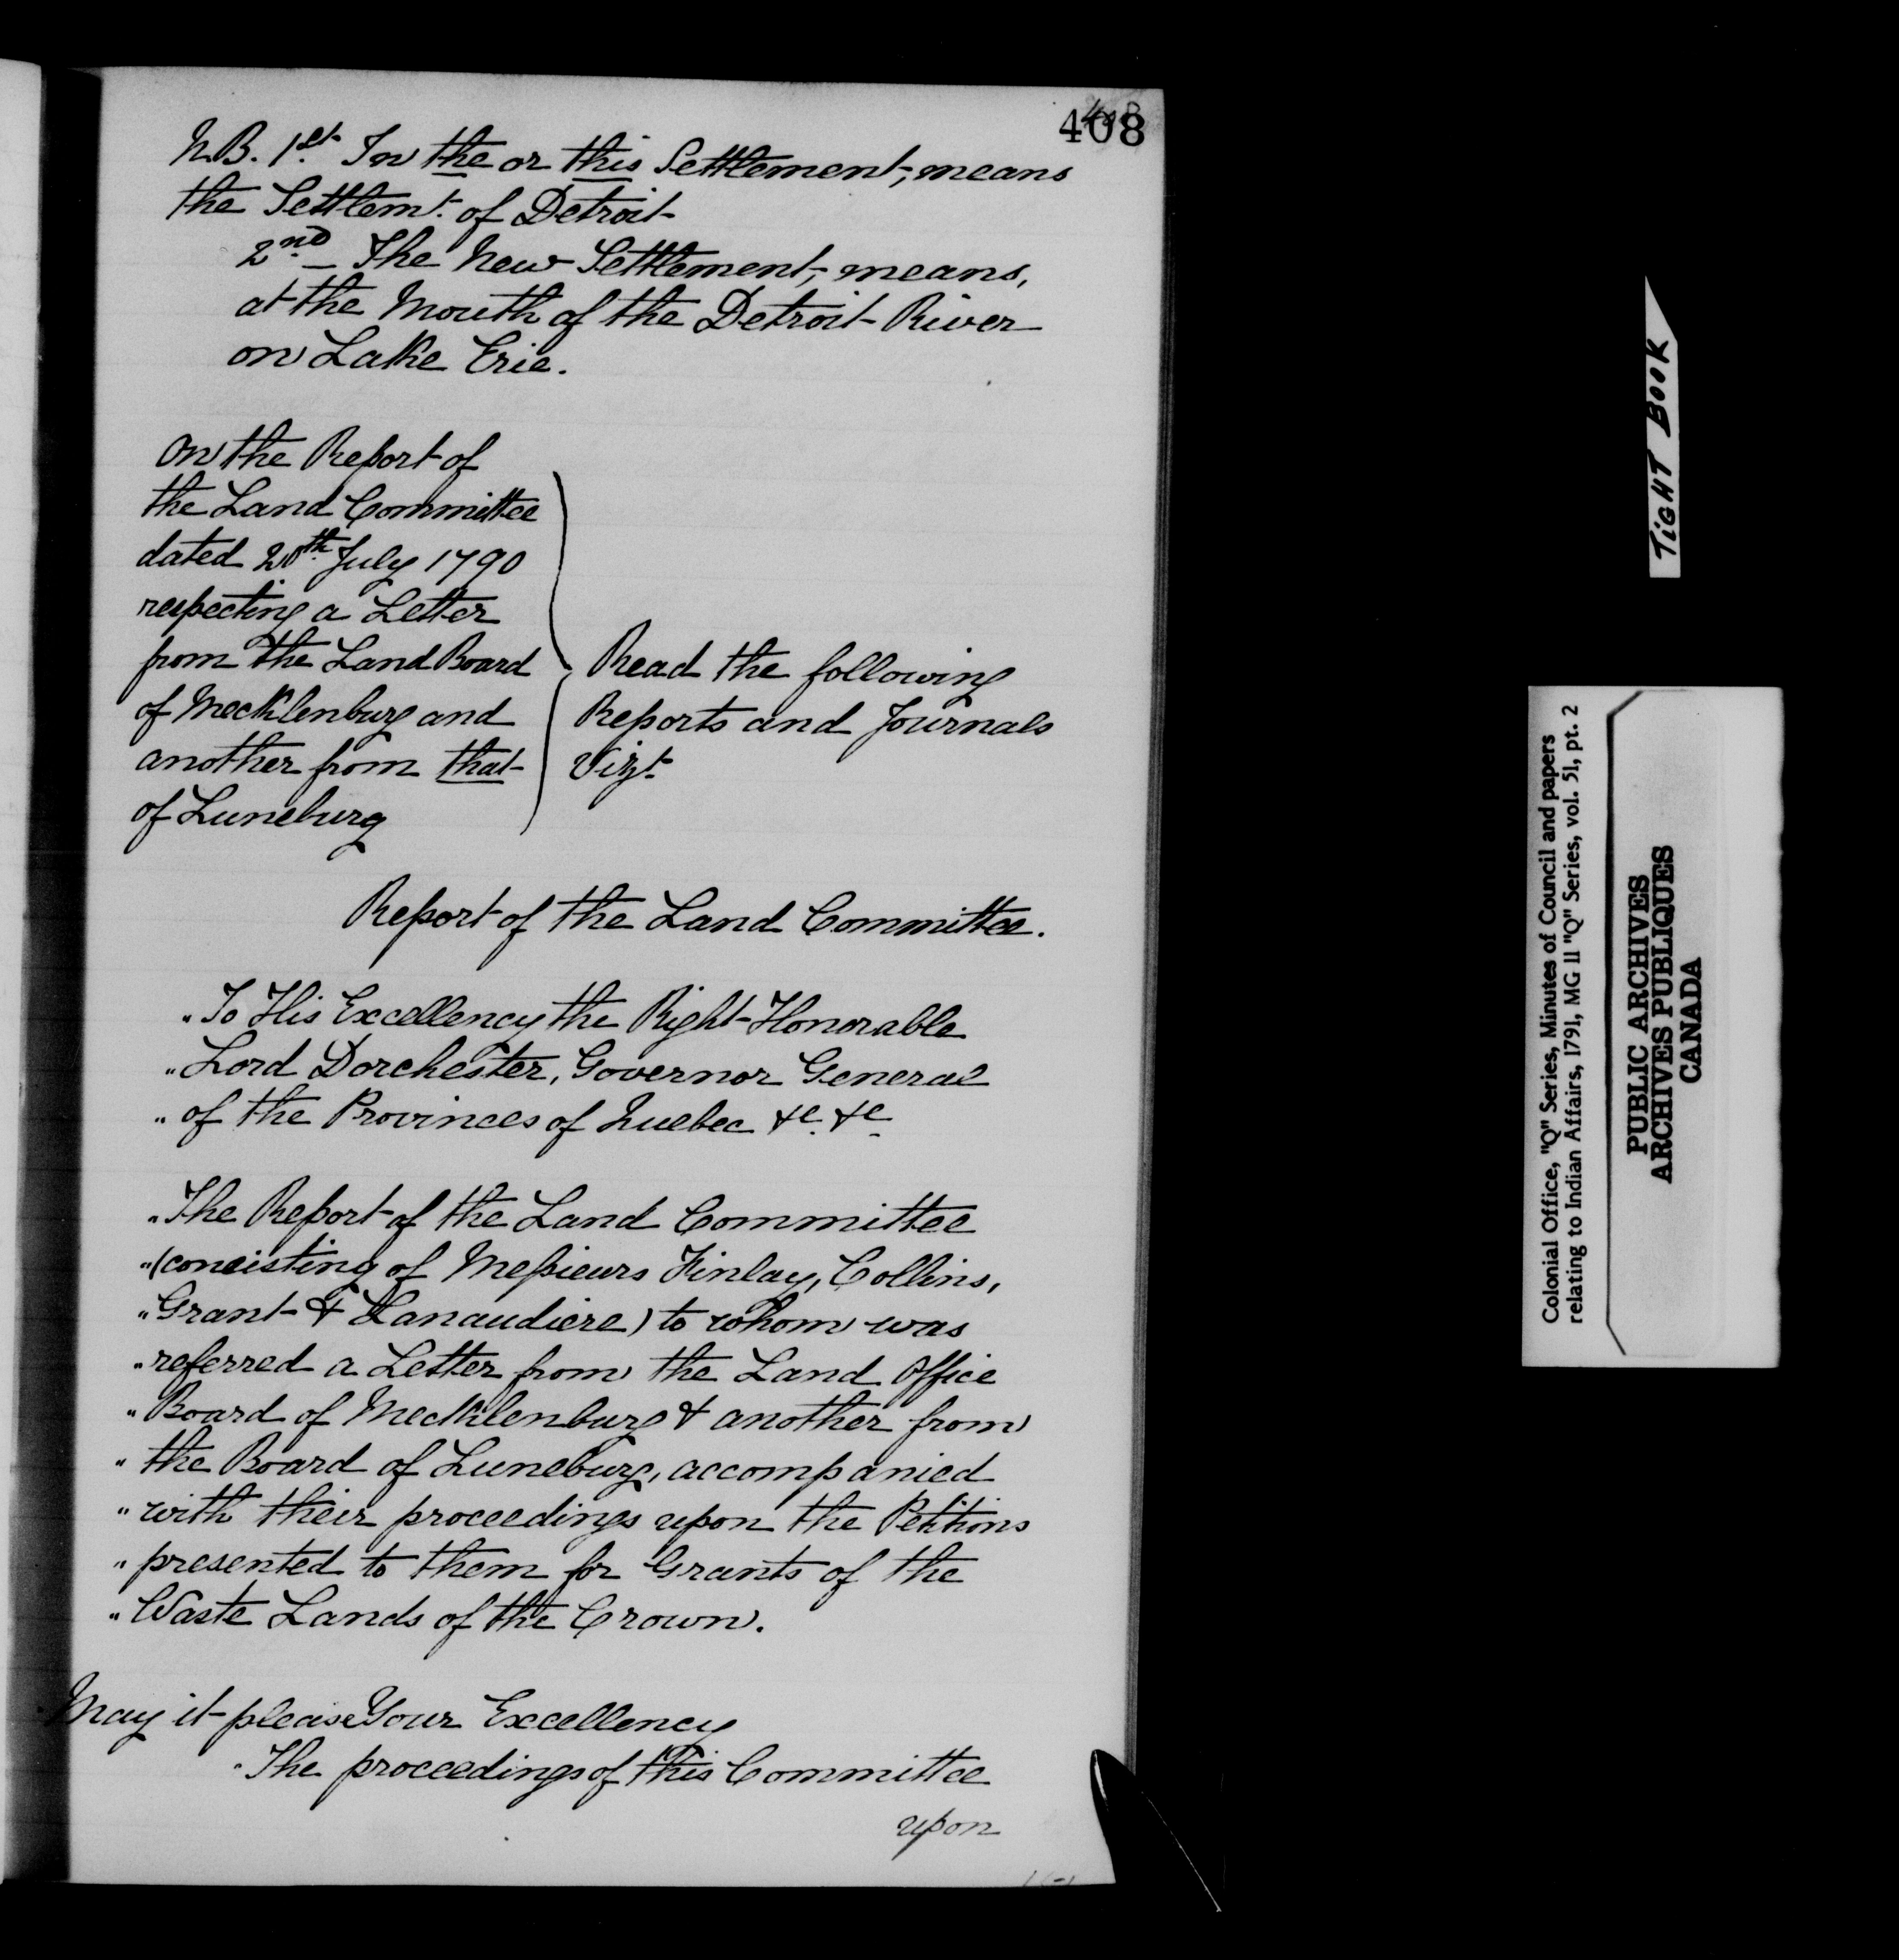 408
N.B. 1st. In the or this Settlement, means
the Settlemt. of Detroit
2nd. – The New Settlement, means,
at the Mouth of the Detroit River
on Lake Erie.
On the Report of
the Land Committee
dated 20th. July 1790
respecting a Letter
from the Land Board
of Mecklenburg and
another from that
of Luneburg
Read the following
Reports and Journals
Vizt.
Report of the Land Committee.
"To His Excellency the Right Honorable
"Lord Dorchester, Governor General
"of the Provinces of Quebec &c. &c.
"The Report of the Land Committee
"(consisting of Messieurs Finlay, Collins,
"Grant & Lanaudiere) to whom was
"referred a Letter from the Land Office
"Board of Mecklenburg & another from
"the Board of Luneburg, accompanied
"with their proceedings upon the Petitions
"presented to them for Grants of the
"Waste Lands of the Crown.
May it please Your Excellency
"The proceedings of this Committee
upon
TIGHT BOOK
Colonial Office, "Q" Series, Minutes of Council and papers
relating to Indian Affairs, 1791, MG 11 "Q" Series, vol. 51, pt. 2
PUBLIC ARCHIVES
ARCHIVES PUBLIQUES
CANADA